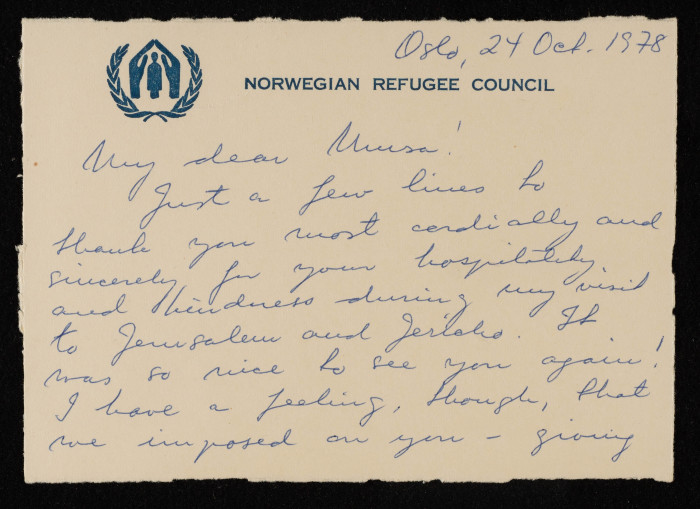 Oslo, 24 Oct. 1978
NORWEGIAN REFUGEE COUNCIL
My dear Musa!
Just a few lines to
thank you most cordially and
sincerely for your hospitality
and kindness during my visit
to Jerusalem and Jericho. It
was so nice to see you again!
I have a feeling, though, that
we imposed on you - giving